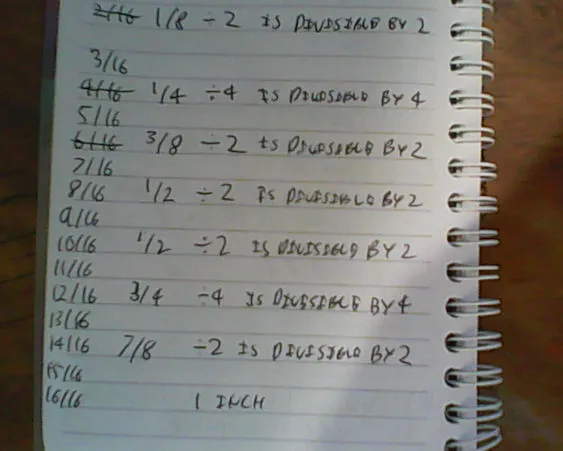 2/16 1/8 ÷ 2 IS DIVISIBLE BY 2
3/16
4/16 1/4 ÷4 IS DIVISIBLE BY 4
5/16
6/16 3/8 ÷ 2 IS DIVISIBLE BY 2
7/16
8/16 1/2 ÷ 2 IS DIVISIBLE BY 2
9/16
10/16 1/2 ÷ 2 IS DIVISIBLE BY 2
11/16
12/16 3/4 ÷4 IS DIVISIBLE BY 4
13/16
14/16 7/8 ÷2 IS DIVISIBLE BY 2
15/16
16/16 1 INCH